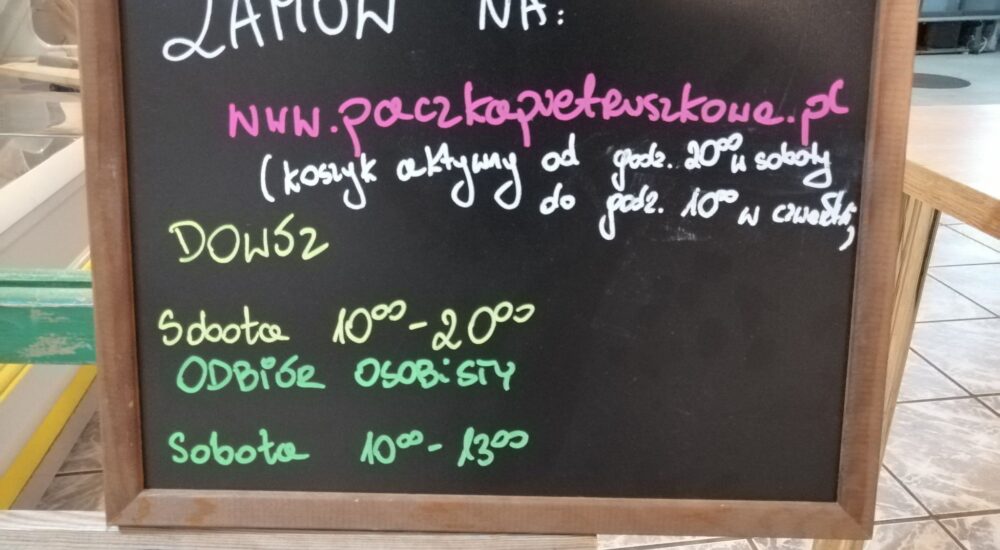 ZAMÓW NA:
www.paczkapietruszkowa.pl
(koszyk aktywny od godz. 20⁰⁰ w soboty
do godz. 10⁰⁰ w czwartki)
DOWÓZ
Sobota 10⁰⁰-20⁰⁰
ODBIÓR OSOBISTY
Sobota 10⁰⁰-13⁰⁰